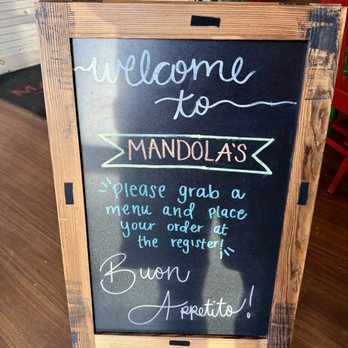 welcome
to
MANDOLA'S
please grab a
menu and place
your order at
the register!
Buon
Appetito!